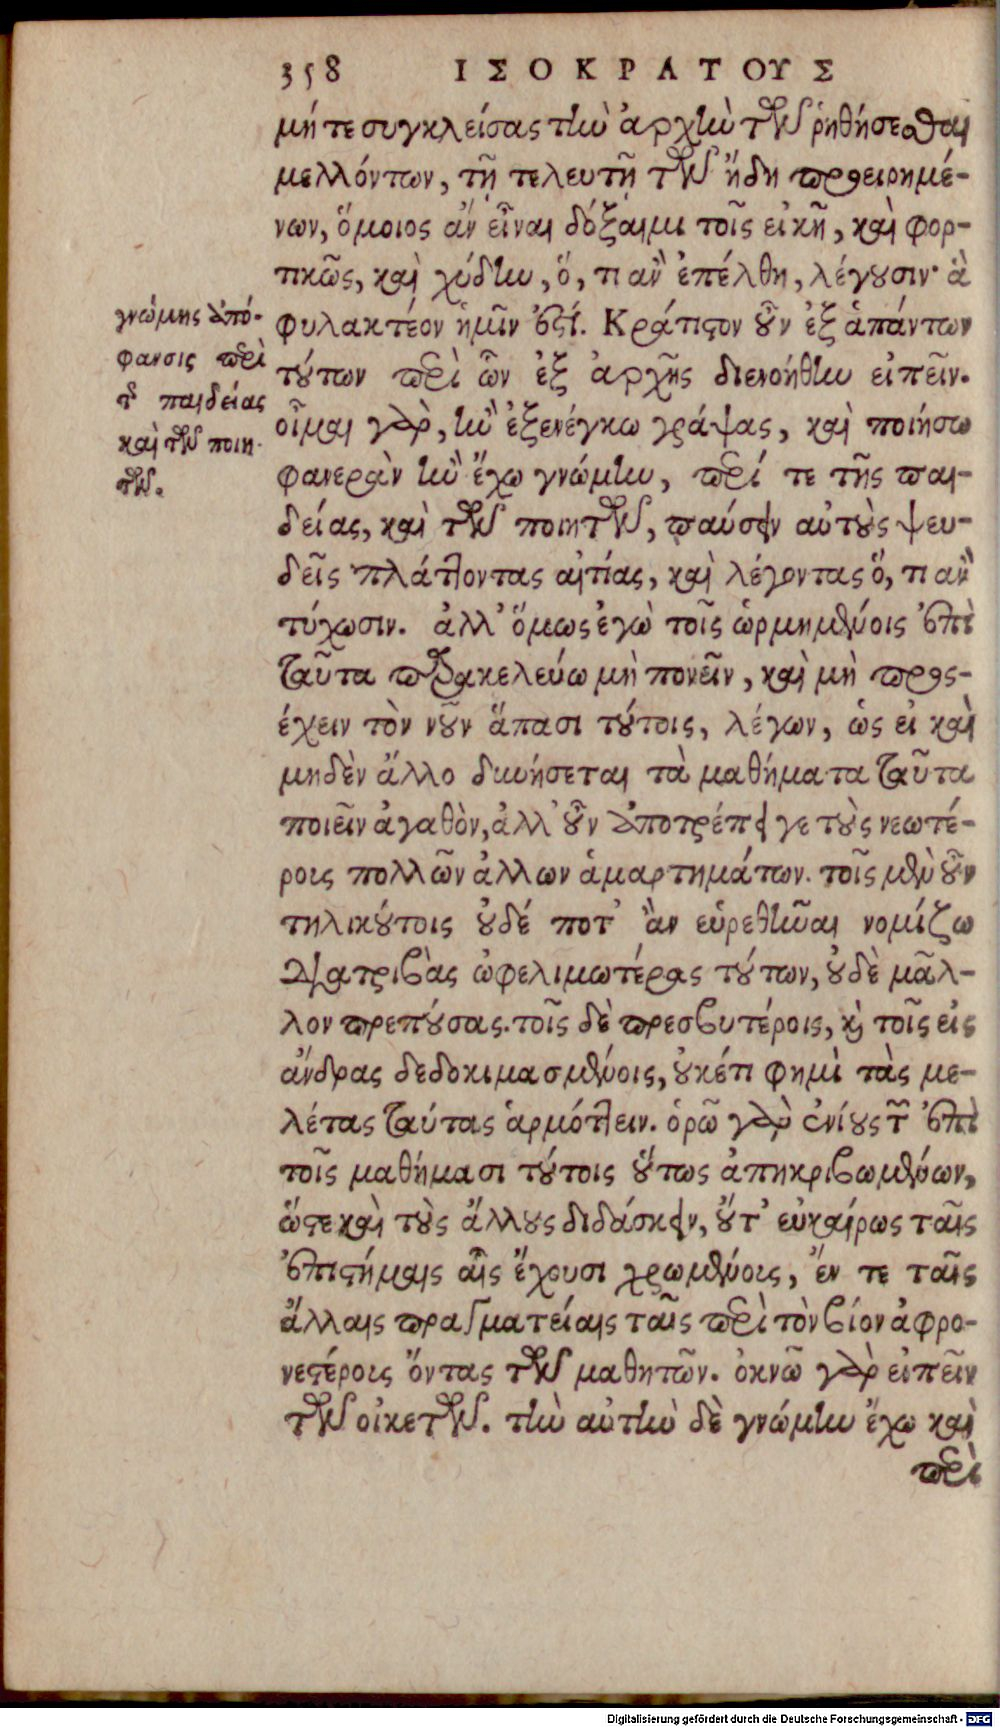 358 ΙΣΟΚΡΑΤΟΥΣ
μήτε συγκλείσας τὴν ἀρχὴν τῶν ῥηθήσεσθαι
μελλόντων, τῇ τελευτῇ τῶν ἤδη προειρημέ-
νων, ὅμοιος ἂν εἶναι δόξαιμι τοῖς εἰκῆ, καὶ φορ-
τικῶς, καὶ χύδην, ὅ, τι ἂν ἐπέλθῃ, λέγουσιν· ἃ
φυλακτέον ἡμῖν ἐστί. Κράτιστον οὖν ἐξ ἁπάντων
τούτων περὶ ὧν ἐξ ἀρχῆς διενοήθην εἰπεῖν.
οἶμαι γὰρ, ἢν ἐξενέγκω γράψας, καὶ ποιήσω
φανερὰν ἣν ἔχω γνώμην, περί τε τῆς παι-
δείας, καὶ τῶν ποιητῶν, παύσειν αὐτοὺς ψευ-
δεῖς πλάττοντας αἰτίας, καὶ λέγοντας ὅ, τι ἂν
τύχωσιν. ἀλλ' ὅμως ἐγὼ τοῖς ὡρμημένοις ἐπὶ
ταῦτα παρακελεύω μὴ πονεῖν, καὶ μὴ προς-
έχειν τὸν νοῦν ἅπασι τούτοις, λέγων, ὡς εἰ καὶ
μηδὲν ἄλλο δυνήσεται τὰ μαθήματα ταῦτα
ποιεῖν ἀγαθὸν, ἀλλ' οὖν ἀποτρέπει γε τοὺς νεωτέ-
ρους πολλῶν ἄλλων ἁμαρτημάτων. τοῖς μὲν οὖν
τηλικούτοις οὐδέ ποτ' ἂν εὑρεθῆναι νομίζω
διατριβὰς ὠφελιμωτέρας τούτων, οὐδὲ μᾶλ-
λον πρεπούσας. τοῖς δὲ πρεσβυτέροις, καὶ τοῖς εἰς
ἄνδρας δεδοκιμασμένοις, οὐκέτι φημὶ τὰς με-
λέτας ταύτας ἁρμόττειν. ὁρῶ γὰρ ἐνίους τῶν ἐπὶ
τοῖς μαθήμασι τούτοις οὕτως ἀπηκριβωμένων,
ὥστε καὶ τοὺς ἄλλους διδάσκειν, οὔτ' εὐκαίρως ταῖς
ἐπιστήμαις αἷς ἔχουσι χρωμένους, ἔν τε ταῖς
ἄλλαις πραγματείαις ταῖς περὶ τὸν βίον ἀφρο-
νεστέρους ὄντας τῶν μαθητῶν. ὀκνῶ γὰρ εἰπεῖν
τῶν οἰκετῶν. τὴν αὐτὴν δὲ γνώμην ἔχω καὶ
περὶ
γνώμης ἀπό-
φανσις περὶ
τῆς παιδείας
καὶ τῶν ποιη-
τῶν.
Digitalisierung gefördert durch die Deutsche Forschungsgemeinschaft - DFG